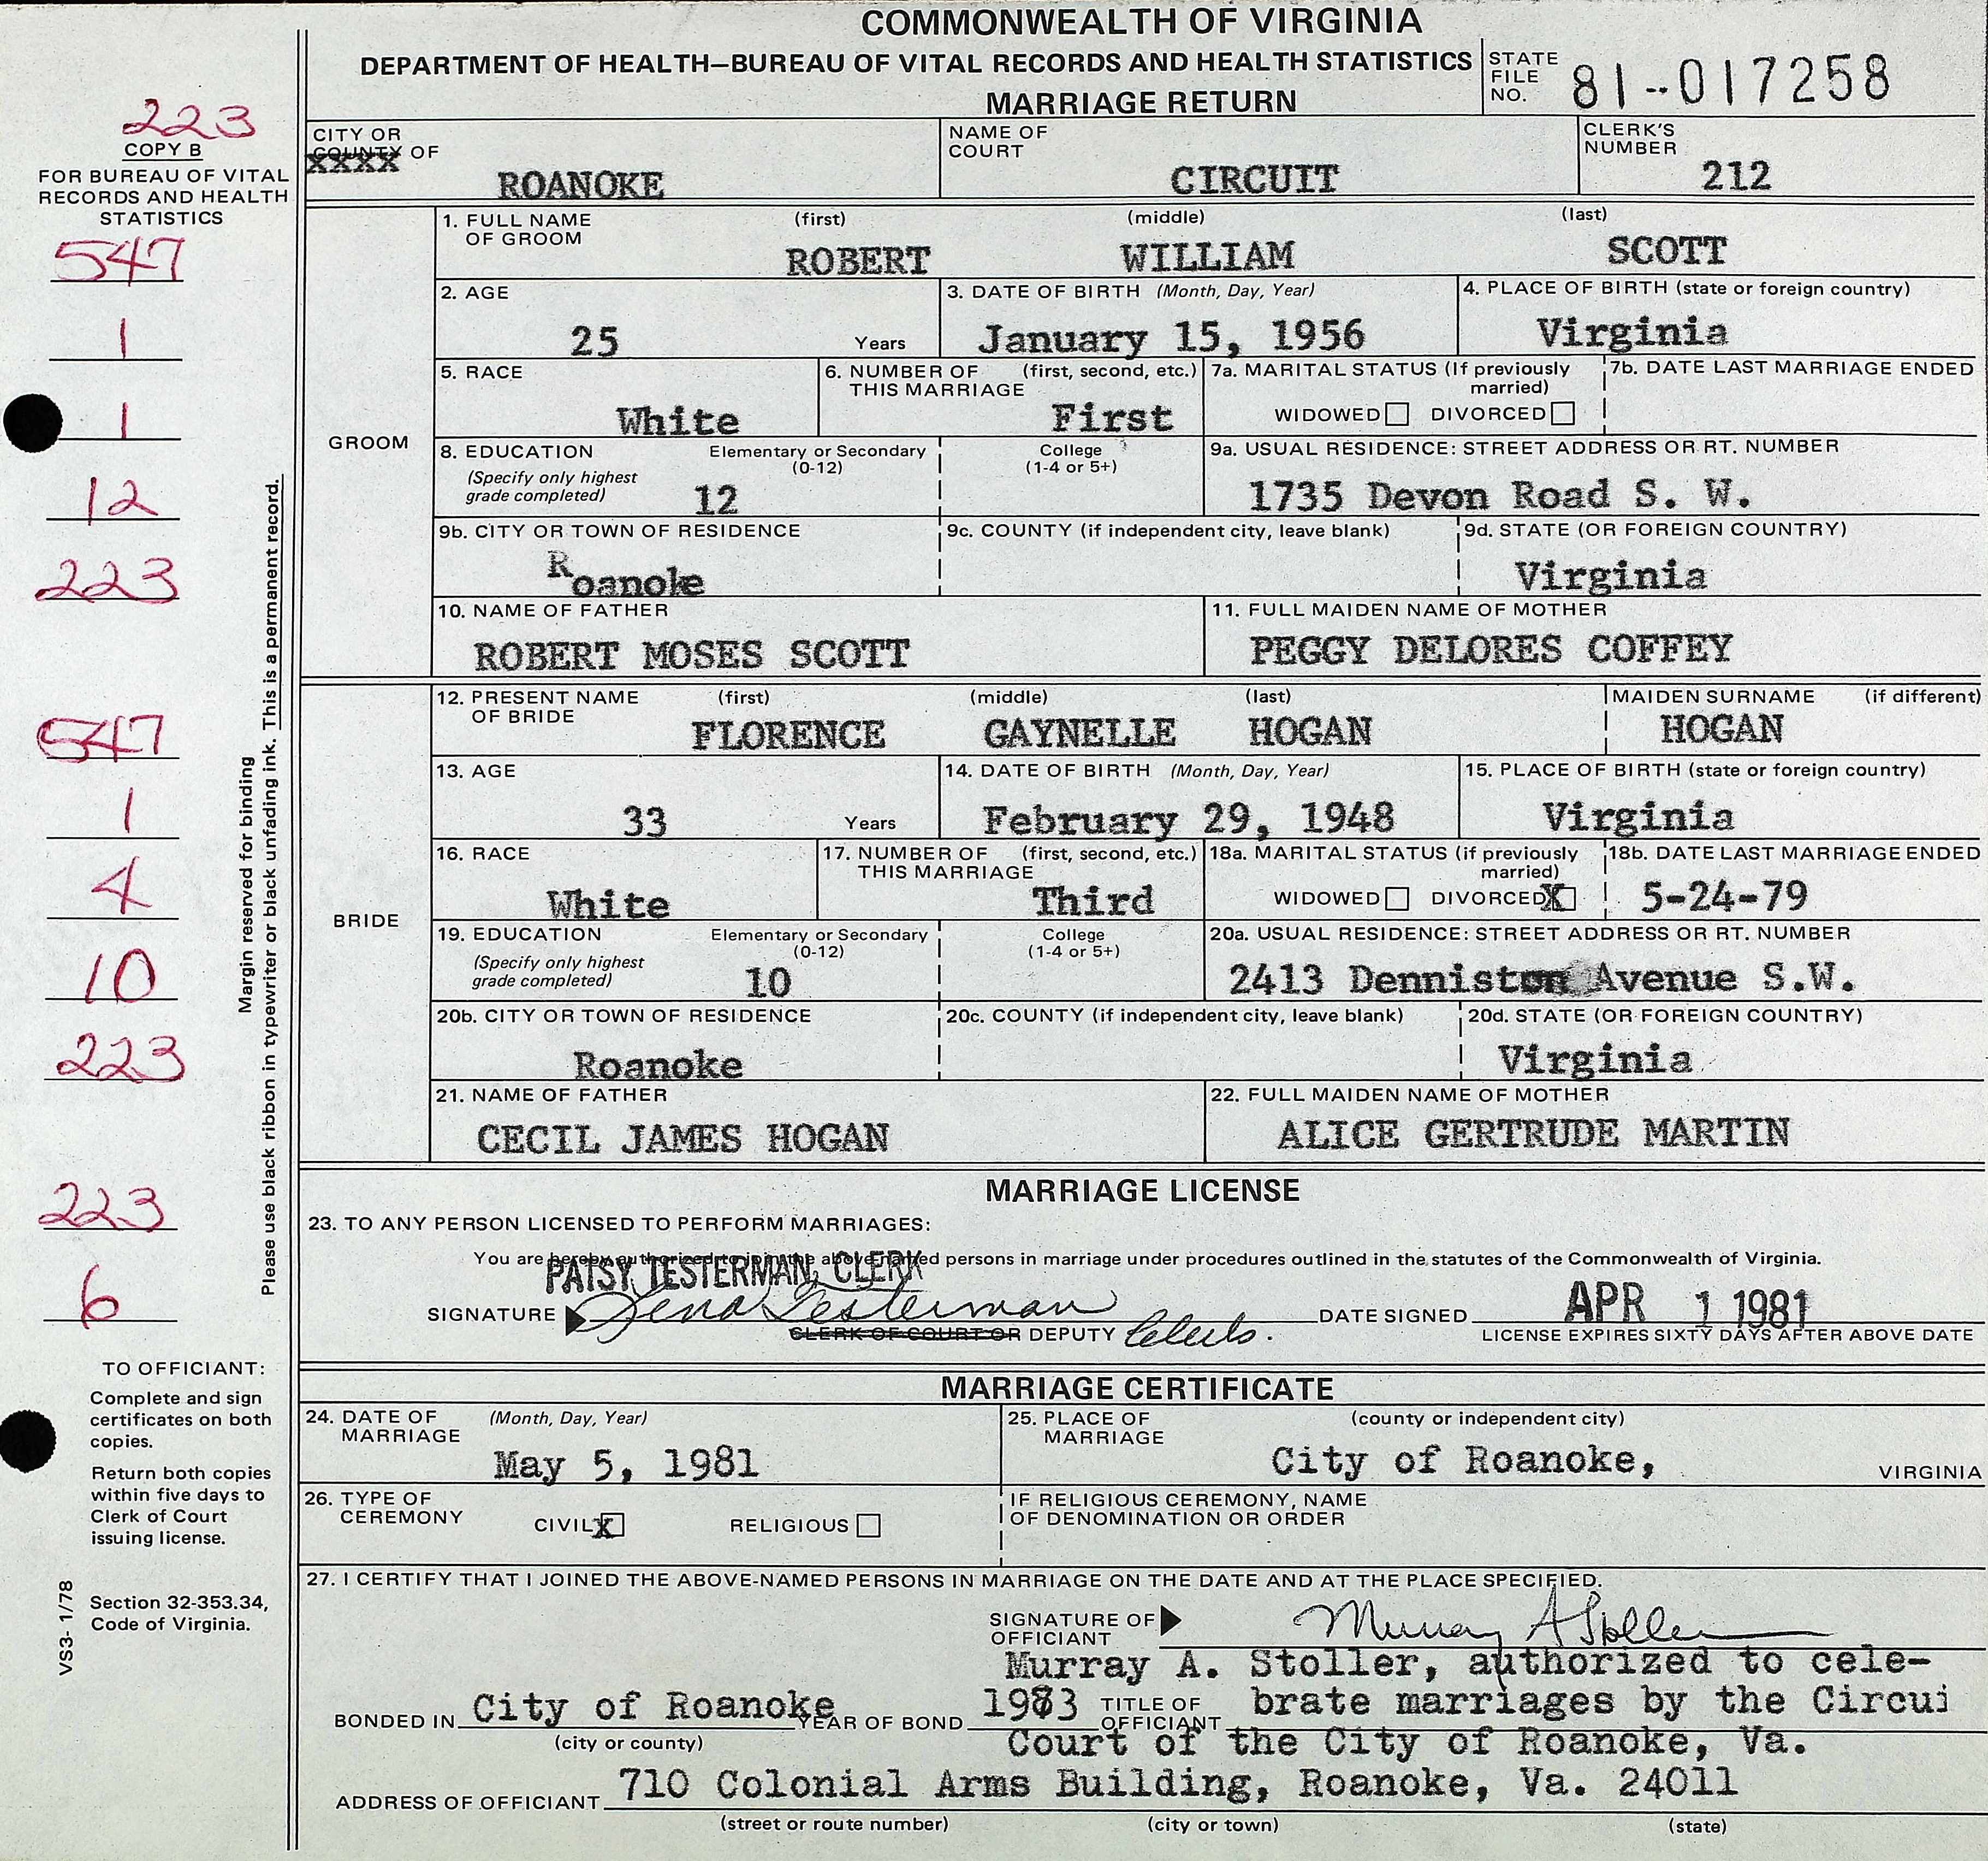 COMMONWEALTH OF VIRGINIA
DEPARTMENT OF HEALTH—BUREAU OF VITAL RECORDS AND HEALTH STATISTICS
MARRIAGE RETURN
STATE FILE NO. 81--017258
223
COPY B
FOR BUREAU OF VITAL
RECORDS AND HEALTH
STATISTICS
547
1
1
12
223
547
1
4
10
223
223
6
Margin reserved for binding
Please use black ribbon in typewriter or black unfading ink. This is a permanent record.
TO OFFICIANT:
Complete and sign
certificates on both
copies.
Return both copies
within five days to
Clerk of Court
issuing license.
Section 32-353.34,
Code of Virginia.
VS3- 1/78
CITY OR COUNTY OF XXXX ROANOKE
NAME OF COURT CIRCUIT
CLERK'S NUMBER 212
GROOM
1. FULL NAME OF GROOM (first) (middle) (last)
ROBERT WILLIAM SCOTT
2. AGE 25 Years
3. DATE OF BIRTH (Month, Day, Year) January 15, 1956
4. PLACE OF BIRTH (state or foreign country) Virginia
5. RACE White
6. NUMBER OF THIS MARRIAGE (first, second, etc.) First
7a. MARITAL STATUS (If previously married) WIDOWED DIVORCED
7b. DATE LAST MARRIAGE ENDED
8. EDUCATION (Specify only highest grade completed) Elementary or Secondary (0-12) 12
College (1-4 or 5+)
9a. USUAL RESIDENCE: STREET ADDRESS OR RT. NUMBER
1735 Devon Road S. W.
9b. CITY OR TOWN OF RESIDENCE Roanoke
9c. COUNTY (if independent city, leave blank)
9d. STATE (OR FOREIGN COUNTRY) Virginia
10. NAME OF FATHER
ROBERT MOSES SCOTT
11. FULL MAIDEN NAME OF MOTHER
PEGGY DELORES COFFEY
BRIDE
12. PRESENT NAME OF BRIDE (first) (middle) (last) MAIDEN SURNAME (if different)
FLORENCE GAYNELLE HOGAN HOGAN
13. AGE 33 Years
14. DATE OF BIRTH (Month, Day, Year) February 29, 1948
15. PLACE OF BIRTH (state or foreign country) Virginia
16. RACE White
17. NUMBER OF THIS MARRIAGE (first, second, etc.) Third
18a. MARITAL STATUS (if previously married) WIDOWED DIVORCED X
18b. DATE LAST MARRIAGE ENDED 5-24-79
19. EDUCATION (Specify only highest grade completed) Elementary or Secondary (0-12) 10
College (1-4 or 5+)
20a. USUAL RESIDENCE: STREET ADDRESS OR RT. NUMBER
2413 Denniston Avenue S.W.
20b. CITY OR TOWN OF RESIDENCE Roanoke
20c. COUNTY (if independent city, leave blank)
20d. STATE (OR FOREIGN COUNTRY) Virginia
21. NAME OF FATHER
CECIL JAMES HOGAN
22. FULL MAIDEN NAME OF MOTHER
ALICE GERTRUDE MARTIN
MARRIAGE LICENSE
23. TO ANY PERSON LICENSED TO PERFORM MARRIAGES:
You are hereby authorized to join the above-named persons in marriage under procedures outlined in the statutes of the Commonwealth of Virginia.
PATSY TESTERMAN, CLERK
SIGNATURE Testerman DATE SIGNED APR 1 1981
CLERK OF COURT OR DEPUTY Clerk.
LICENSE EXPIRES SIXTY DAYS AFTER ABOVE DATE
MARRIAGE CERTIFICATE
24. DATE OF MARRIAGE (Month, Day, Year) May 5, 1981
25. PLACE OF MARRIAGE (county or independent city) City of Roanoke, VIRGINIA
26. TYPE OF CEREMONY CIVIL X RELIGIOUS
IF RELIGIOUS CEREMONY, NAME
OF DENOMINATION OR ORDER
27. I CERTIFY THAT I JOINED THE ABOVE-NAMED PERSONS IN MARRIAGE ON THE DATE AND AT THE PLACE SPECIFIED.
SIGNATURE OF OFFICIANT Murray A Stoller
BONDED IN City of Roanoke (city or county)
YEAR OF BOND 1983
TITLE OF OFFICIANT
Murray A. Stoller, authorized to cele-
brate marriages by the Circui
Court of the City of Roanoke, Va.
ADDRESS OF OFFICIANT 710 Colonial Arms Building, Roanoke, Va. 24011
(street or route number) (city or town) (state)